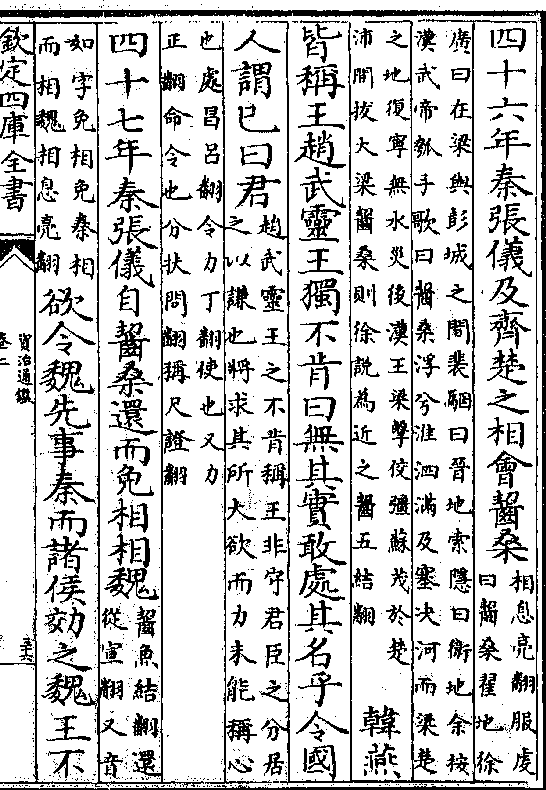 四十六年秦張儀及齊楚之相會齧桑
相息亮翻服虔
曰齧桑翟地徐
廣曰在梁與彭城之間裴駰曰晉地索隱曰衛地余按
漢武帝瓠子歌曰齧桑浮兮淮泗滿及塞决河而梁楚
之地復寧無水災後漢王梁擊佼彊蘇茂於楚
沛間拔大梁齧桑則徐説為近之齧五結翻
韓燕
皆稱王趙武靈王獨不肯曰無其實敢處其名乎令國
人謂已曰君
趙武靈王之不肯稱王非守君臣之分居
之以謙也將求其所大欲而力未能稱心
也處昌吕翻令力丁翻使也又力
正翻命令也分扶問翻稱尺證翻
四十七年秦張儀自齧桑還而免相相魏
齧魚結翻還
從宣翻又音
如字免相免秦相
而相魏相息亮翻
欲令魏先事秦而諸侯効之魏王不
欽定四庫全書
資治通鑑
卷二